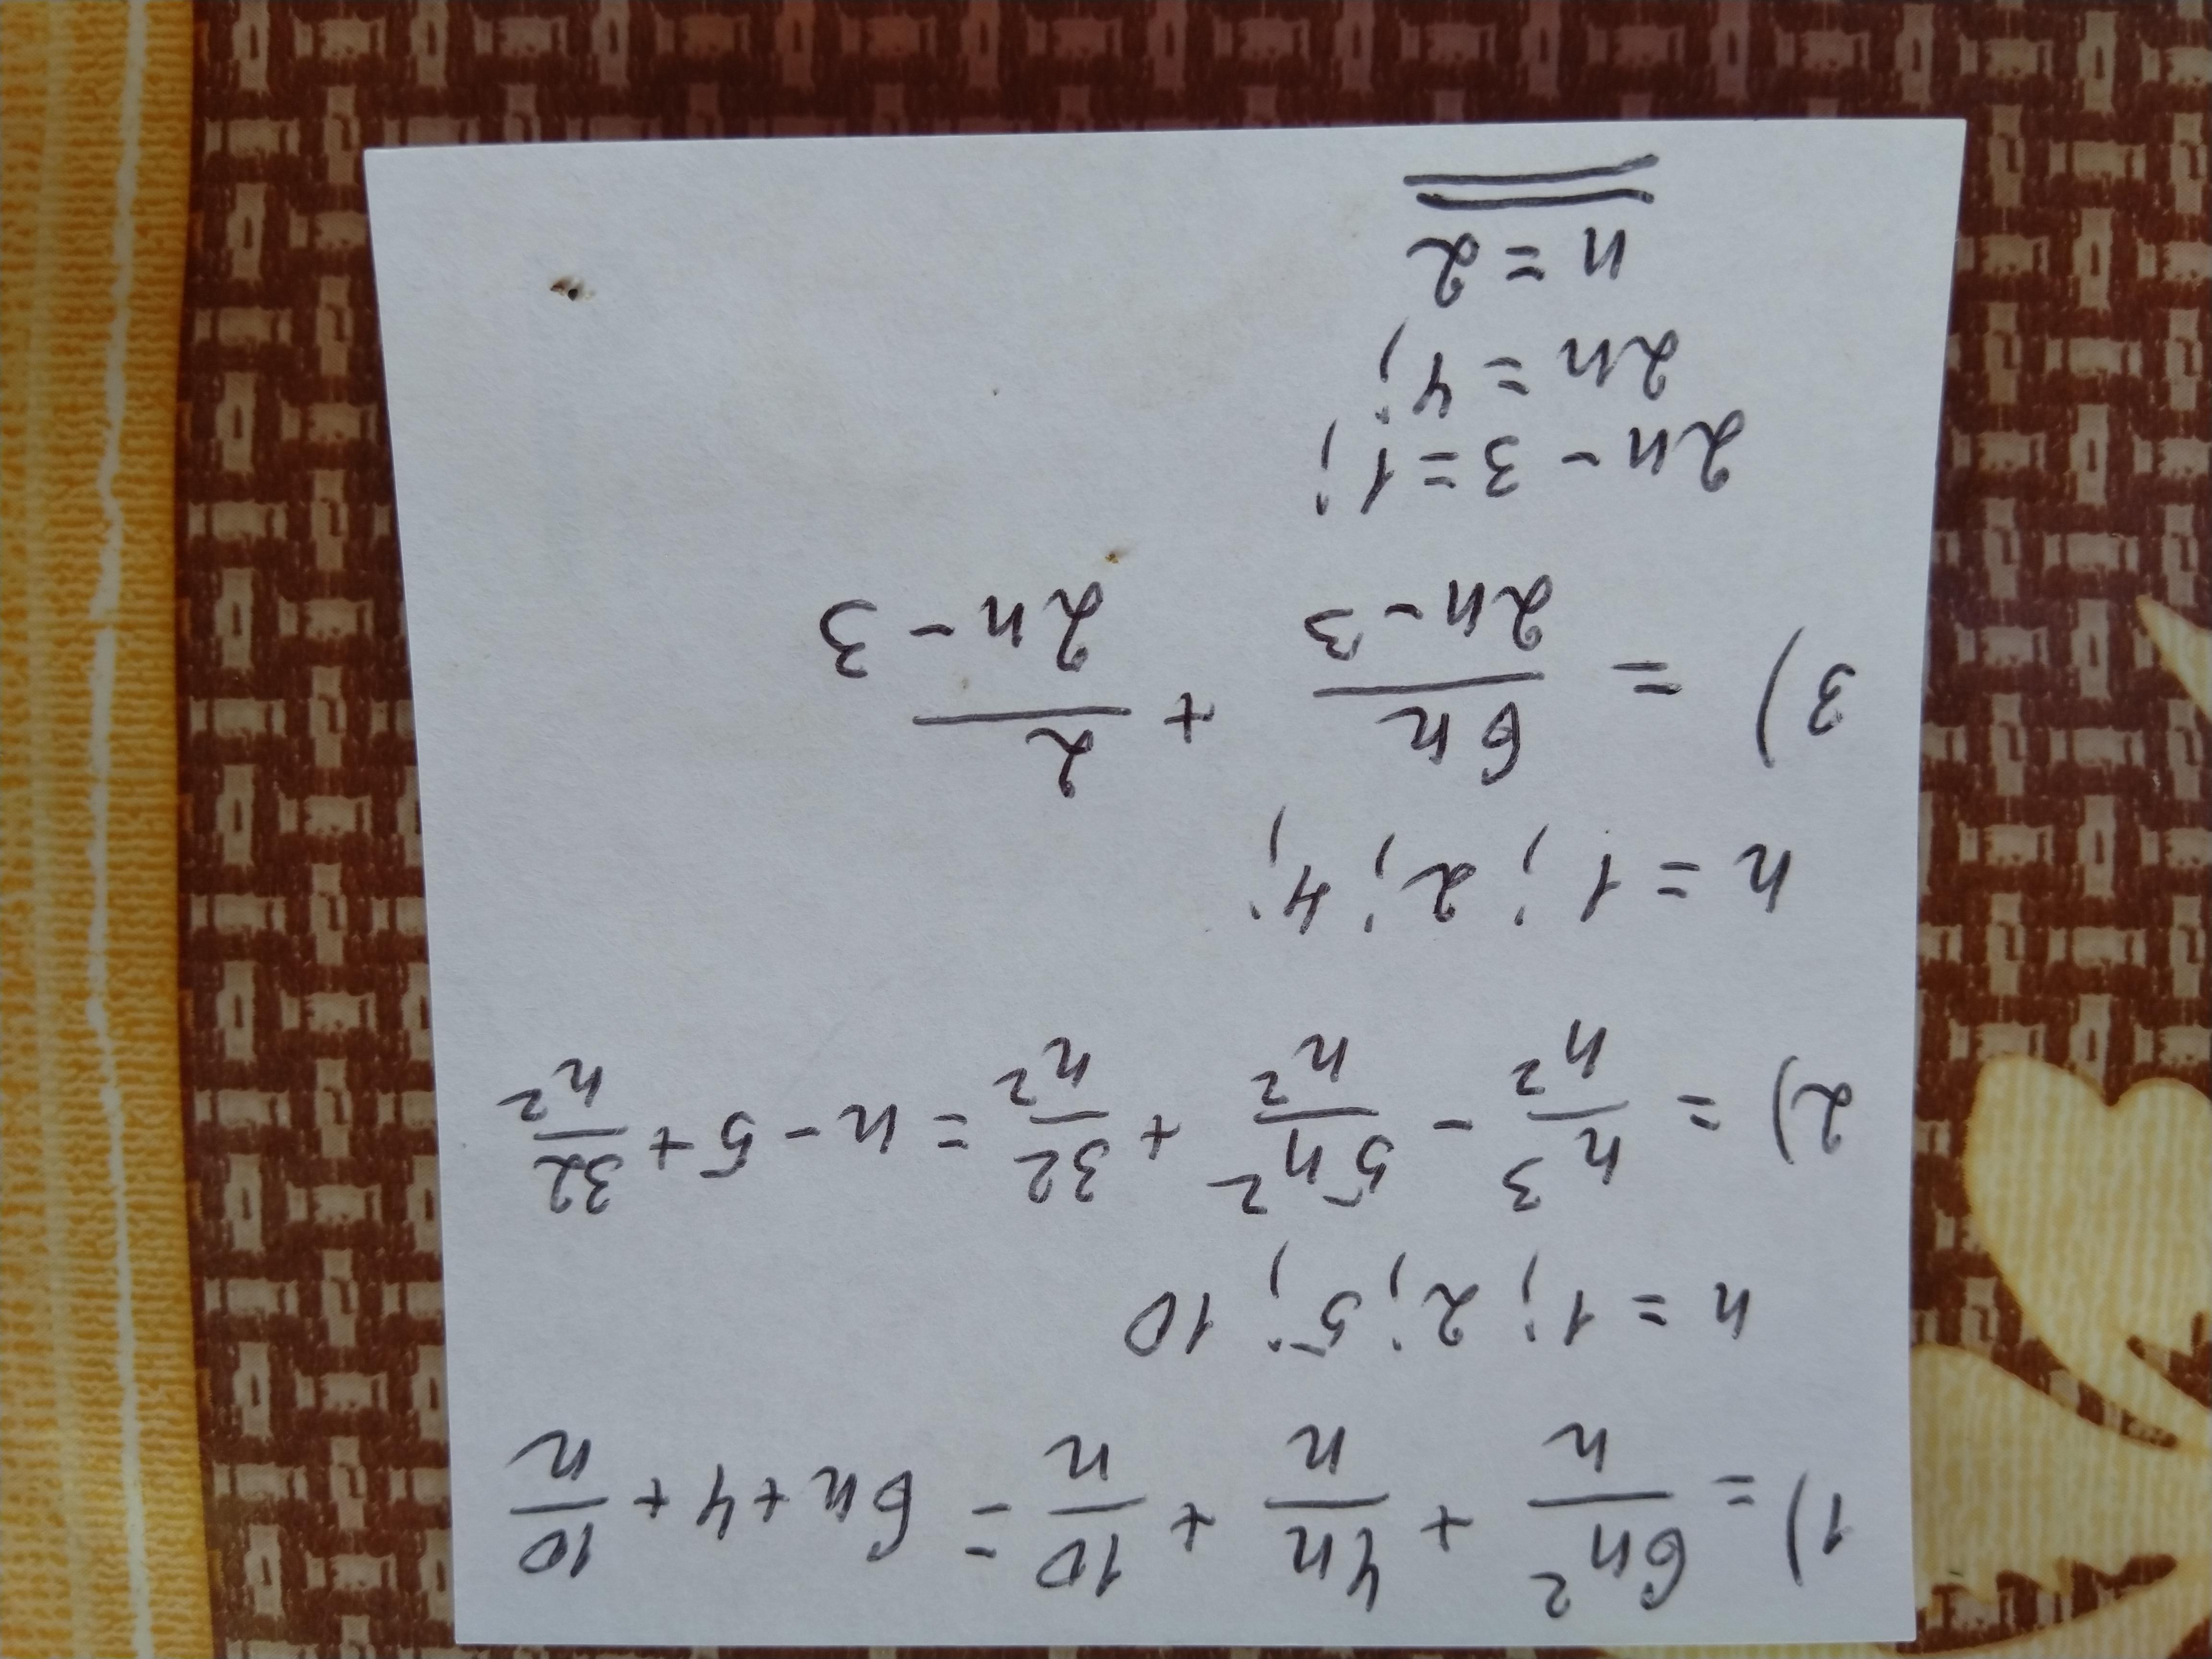 1) = 6n²/n + 4n/n + 10/n = 6n + 4 + 10/n
n = 1; 2; 5; 10
2) = n³/n² - 5n²/n² + 32/n² = n - 5 + 32/n²
n = 1; 2; 4;
3) = 6n/2n-3 + 2/2n-3
2n - 3 = 1;
2n = 4;
n = 2